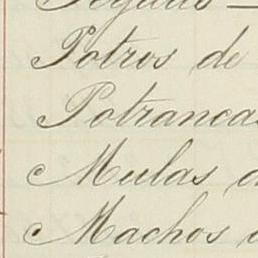 Potros de
Potrancas
Mulas d
Machos